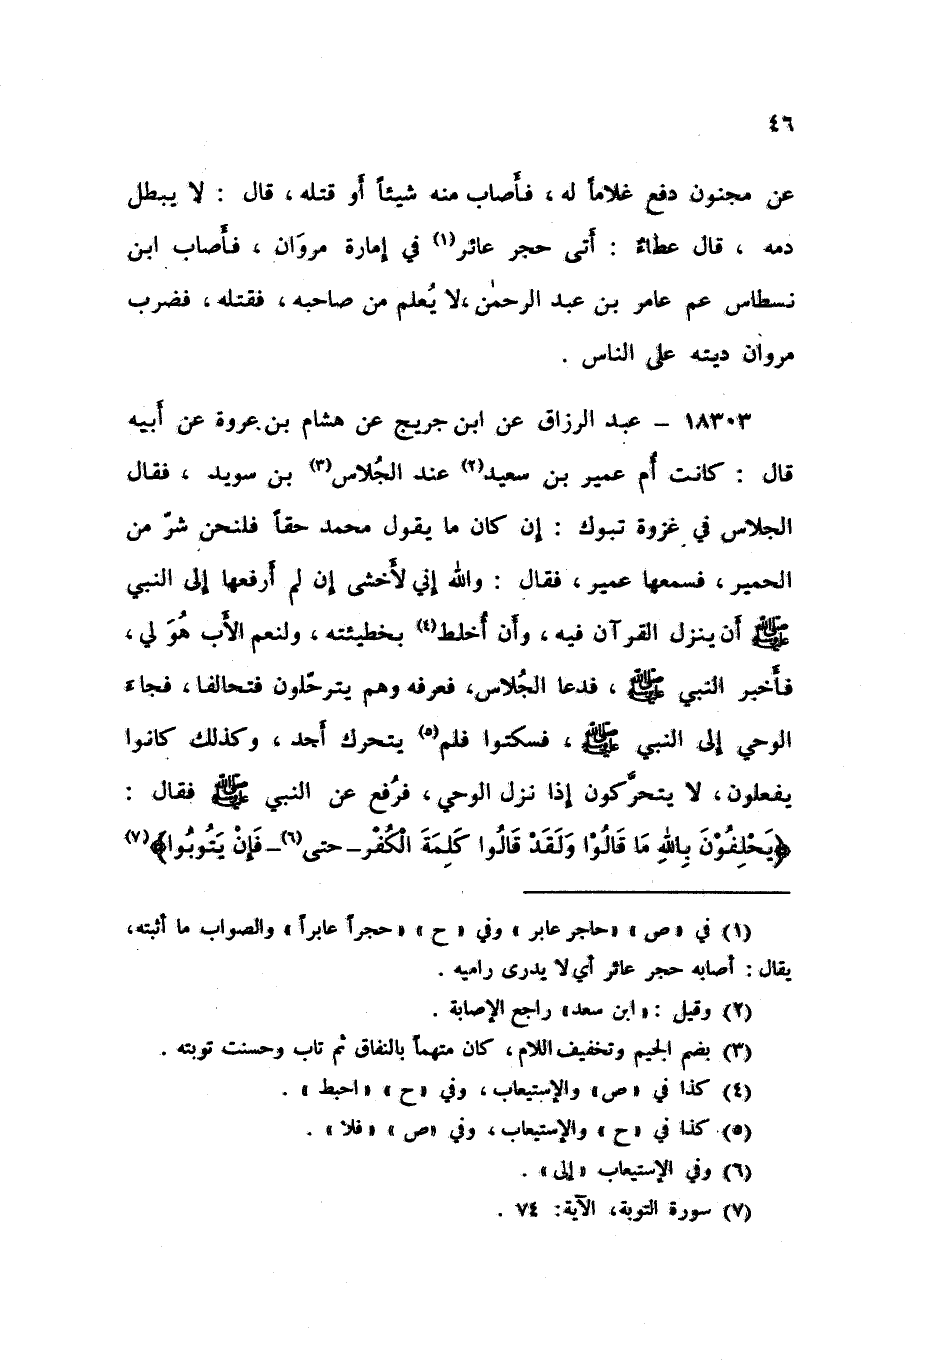 ٤٦
عن مجنون دفع غلاماً له ، فأصاب منه شيئاً أو قتله ، قال : لا يبطل
دمه ، قال عطاءٌ : أَتى حجر عائر(١) في إمارة مروَان ، فأَصاب ابن
نسطاس عم عامر بن عبد الرحمٰن ،لا يُعلم من صاحبه ، فقتله ، فضرب
مروان ديته على الناس .
١٨٣٠٣ – عبد الرزاق عن ابن جريج عن هشام بن عروة عن أَبيه
قال : كانت أُم عمير بن سعيد(٢) عند الجُلاس(٣) بن سويد ، فقال
الجلاس في غزوة تبوك : إن كان ما يقول محمد حقاً فلنحن شرّ من
الحمير ، فسمعها عمير ، فقال : والله إني لأَخشى إن لم أَرفعها إلى النبي
ﷺ أَن ينزل القرآن فيه ، وأَن أُخلط(٤) بخطيئته ، ولنعم الأَب هُوَ لي ،
فأَخبر النبي ﷺ ، فدعا الجُلاس، فعرفه وهم يترحّلون فتحالفا ، فجاءَ
الوحي إلى النبي ﷺ ، فسكتوا فلم(٥) يتحرك أَحد ، وكذلك كانوا
يفعلون ، لا يتحرَّكون إذا نزل الوحي ، فرُفع عن النبي ﷺ فقال :
﴿يَحْلِفُوْنَ بِاللهِ مَا قَالُوْا وَلَقَدْ قَالُوا كَلِمَةَ الْكُفْرِ – حتى(٦) – فَإِنْ يَتُوبُوا﴾(٧)
(١) في «ص» «حاجر عابر » وفي « ح » «حجراً عابراً » والصواب ما أثبته،
يقال : أصابه حجر عائر أي لا يدرى راميه .
(٢) وقيل : «ابن سعد» راجع الإصابة .
(٣) بضم الجيم وتخفيف اللام ، كان متهماً بالنفاق ثم تاب وحسنت توبته .
(٤) كذا في « ص» والإستيعاب ، وفي «ح » « احبط » .
(٥) كذا في «ح » والإستيعاب ، وفي «ص » « فلا » .
(٦) وفي الإستيعاب «إلى» .
(٧) سورة التوبة، الآية: ٧٤ .